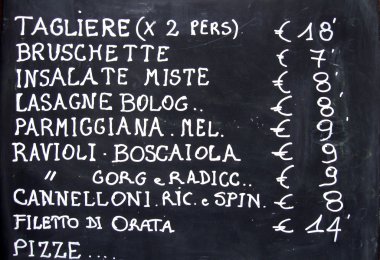 TAGLIERE (X 2 PERS) € 18'
BRUSCHETTE € 7'
INSALATE MISTE € 8'
LASAGNE BOLOG.. € 8'
PARMIGGIANA . MEL. € 9'
RAVIOLI · BOSCAIOLA € 9
" GORG e RADICC.. € 9
CANNELLONI . RIC. e SPIN. € 8
FILETTO DI ORATA € 14'
PIZZE ....